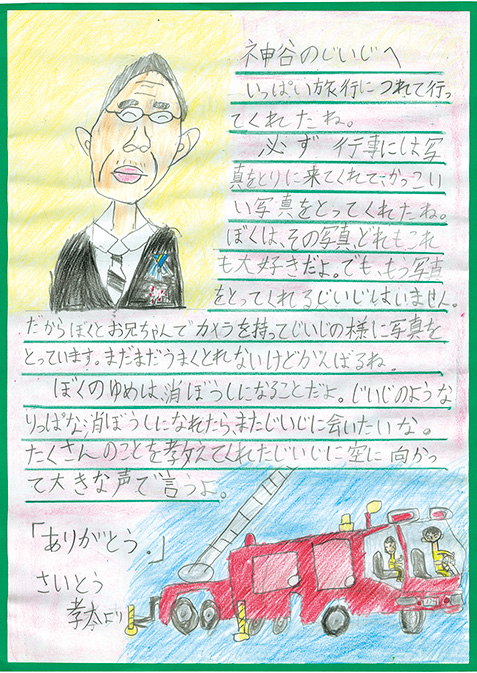 神谷のじいじへ
いっぱい旅行につれて行っ
てくれたね。
必ず行事には写
真をとりに来てくれて、かっこい
い写真をとってくれたね。
ぼくは、その写真、どれもこれ
も大好きだよ。でも、もう写真
をとってくれるじいじはいません。
だからぼくとお兄ちゃんでカメラを持ってじいじの様に写真を
とっています。まだまだうまくとれないけどがんばるね。
ぼくのゆめは、消ぼうしになることだよ。じいじのような
りっぱな消ぼうしになれたら、またじいじに会いたいな。
たくさんのことを教えてくれたじいじに空に向かっ
て大きな声で言うよ。
「ありがとう。」
さいとう
孝太より